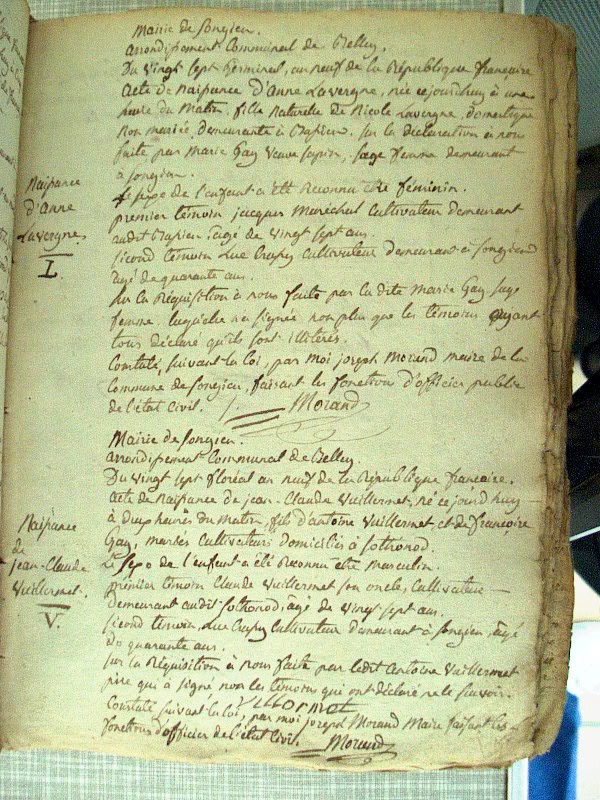 Mairie de Songieu.
arrondissement Communal de Belley.
Du vingt sept Germinal, an neuf de la République française
acte de Naissance d'Anne Lavergne, née cejourd'huy à une
heure du Matin, fille Naturelle de Nicole Lavergne, domestique
Non mariée, demeurante à Bassieu. sur la déclaration à nous
faite par Marie Gay veuve Sapin, sage femme demeurant
à Songieu.
Le sexe de l'enfant a été Reconnu être féminin.
premier témoin jacques Maréchal Cultivateur demeurant
audit Bassieu, âgé de vingt sept ans.
second témoin Luc Crussy Cultivateur demeurant à Songieu
âgé de quarante ans.
sur la Réquisition à nous faite par la dite Marie Gay sage
femme laquelle n'a signée non plus que les témoins ayant
tous déclaré qu'ils sont illitérés.
Constaté, suivant la loi, par moi joseph Morand maire de la
Commune de Songieu, faisant les fonctions d'officier public
de l'état Civil. Morand
Naissance
d'Anne
Lavergne.
I.
Mairie de Songieu.
arrondissement Communal de Belley.
Du vingt sept floréal an neuf de la République française.
acte de Naissance de jean-Claude Vuillermet, né ce jourd'huy
à deux heures du Matin, fils d'antoine Vuillermet et de françoise
Gay, mariés Cultivateurs domiciliés à Sothonod.
Le sexe de l'enfant a été Reconnu être masculin.
premier témoin Claude Vuillermet son oncle, Cultivateur
demeurant audit Sothonod, âgé de vingt sept ans.
second témoin, Luc Crussy Cultivateur demeurant à Songieu, âgé
de quarante ans.
sur la Réquisition à nous faite par ledit Antoine Vuillermet
père qui a signé non les témoins qui ont déclaré ne le sçavoir.
Constaté suivant la loi, par moi joseph Morand Maire faisant les
fonctions d'officier de l'état Civil. Morand
Naissance
de
jean-Claude
Vuillermet.
V.